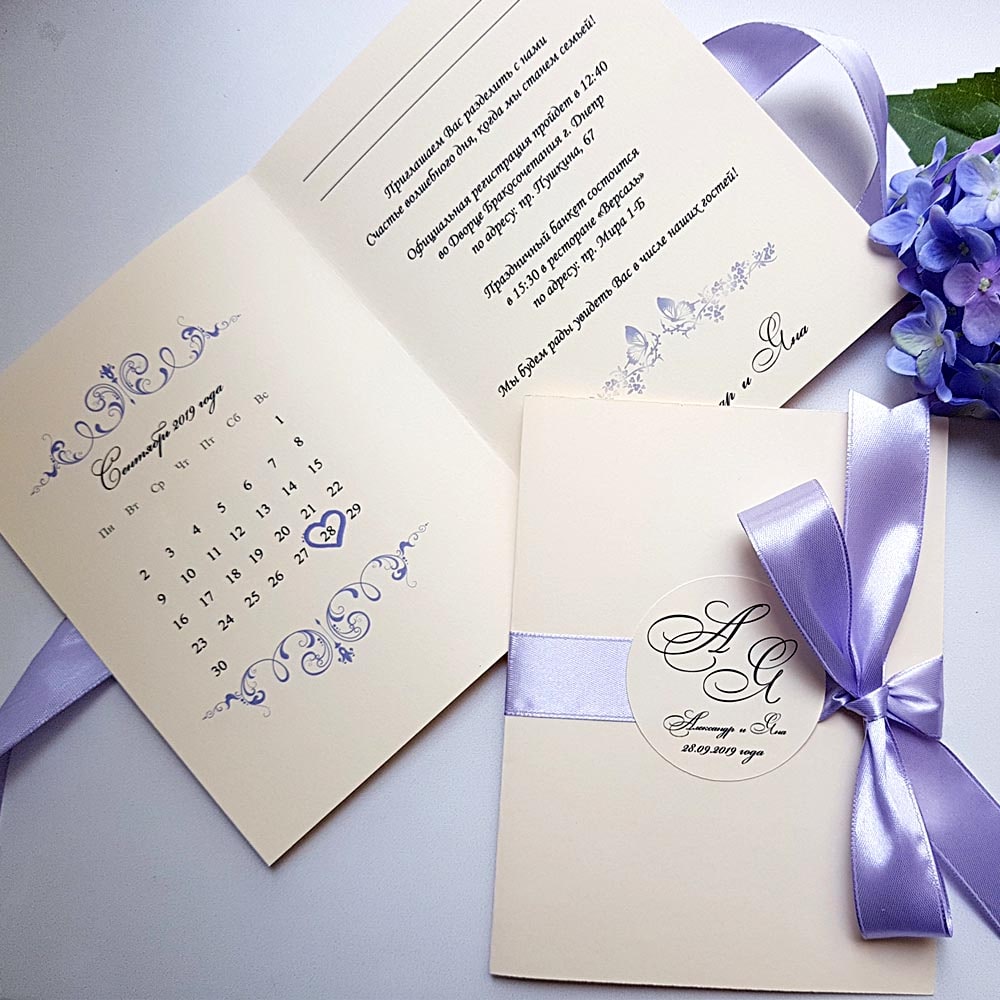 Приглашаем Вас разделить с нами
Счастье волшебного дня, когда мы станем семьей!
Официальная регистрация пройдет в 12:40
во Дворце Бракосочетания г. Днепр
по адресу: пр. Пушкина, 67
Праздничный банкет состоится
в 15:30 в ресторане «Версаль»
по адресу: пр. Мира 1-Б
Мы будем рады увидеть Вас в числе наших гостей!
р и Яна
Сентябрь 2019 года
Пн Вт Ср Чт Пт Сб Вс
1
2 3 4 5 6 7 8
9 10 11 12 13 14 15
16 17 18 19 20 21 22
23 24 25 26 27 28 29
30
А Я
Александр и Яна
28.09.2019 года